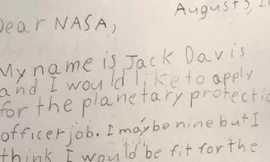 August 3, 2
Dear NASA,
My name is Jack Davis
and I would like to apply
for the planetary protectio
officer job. I may be nine but I
think I would be fit for the